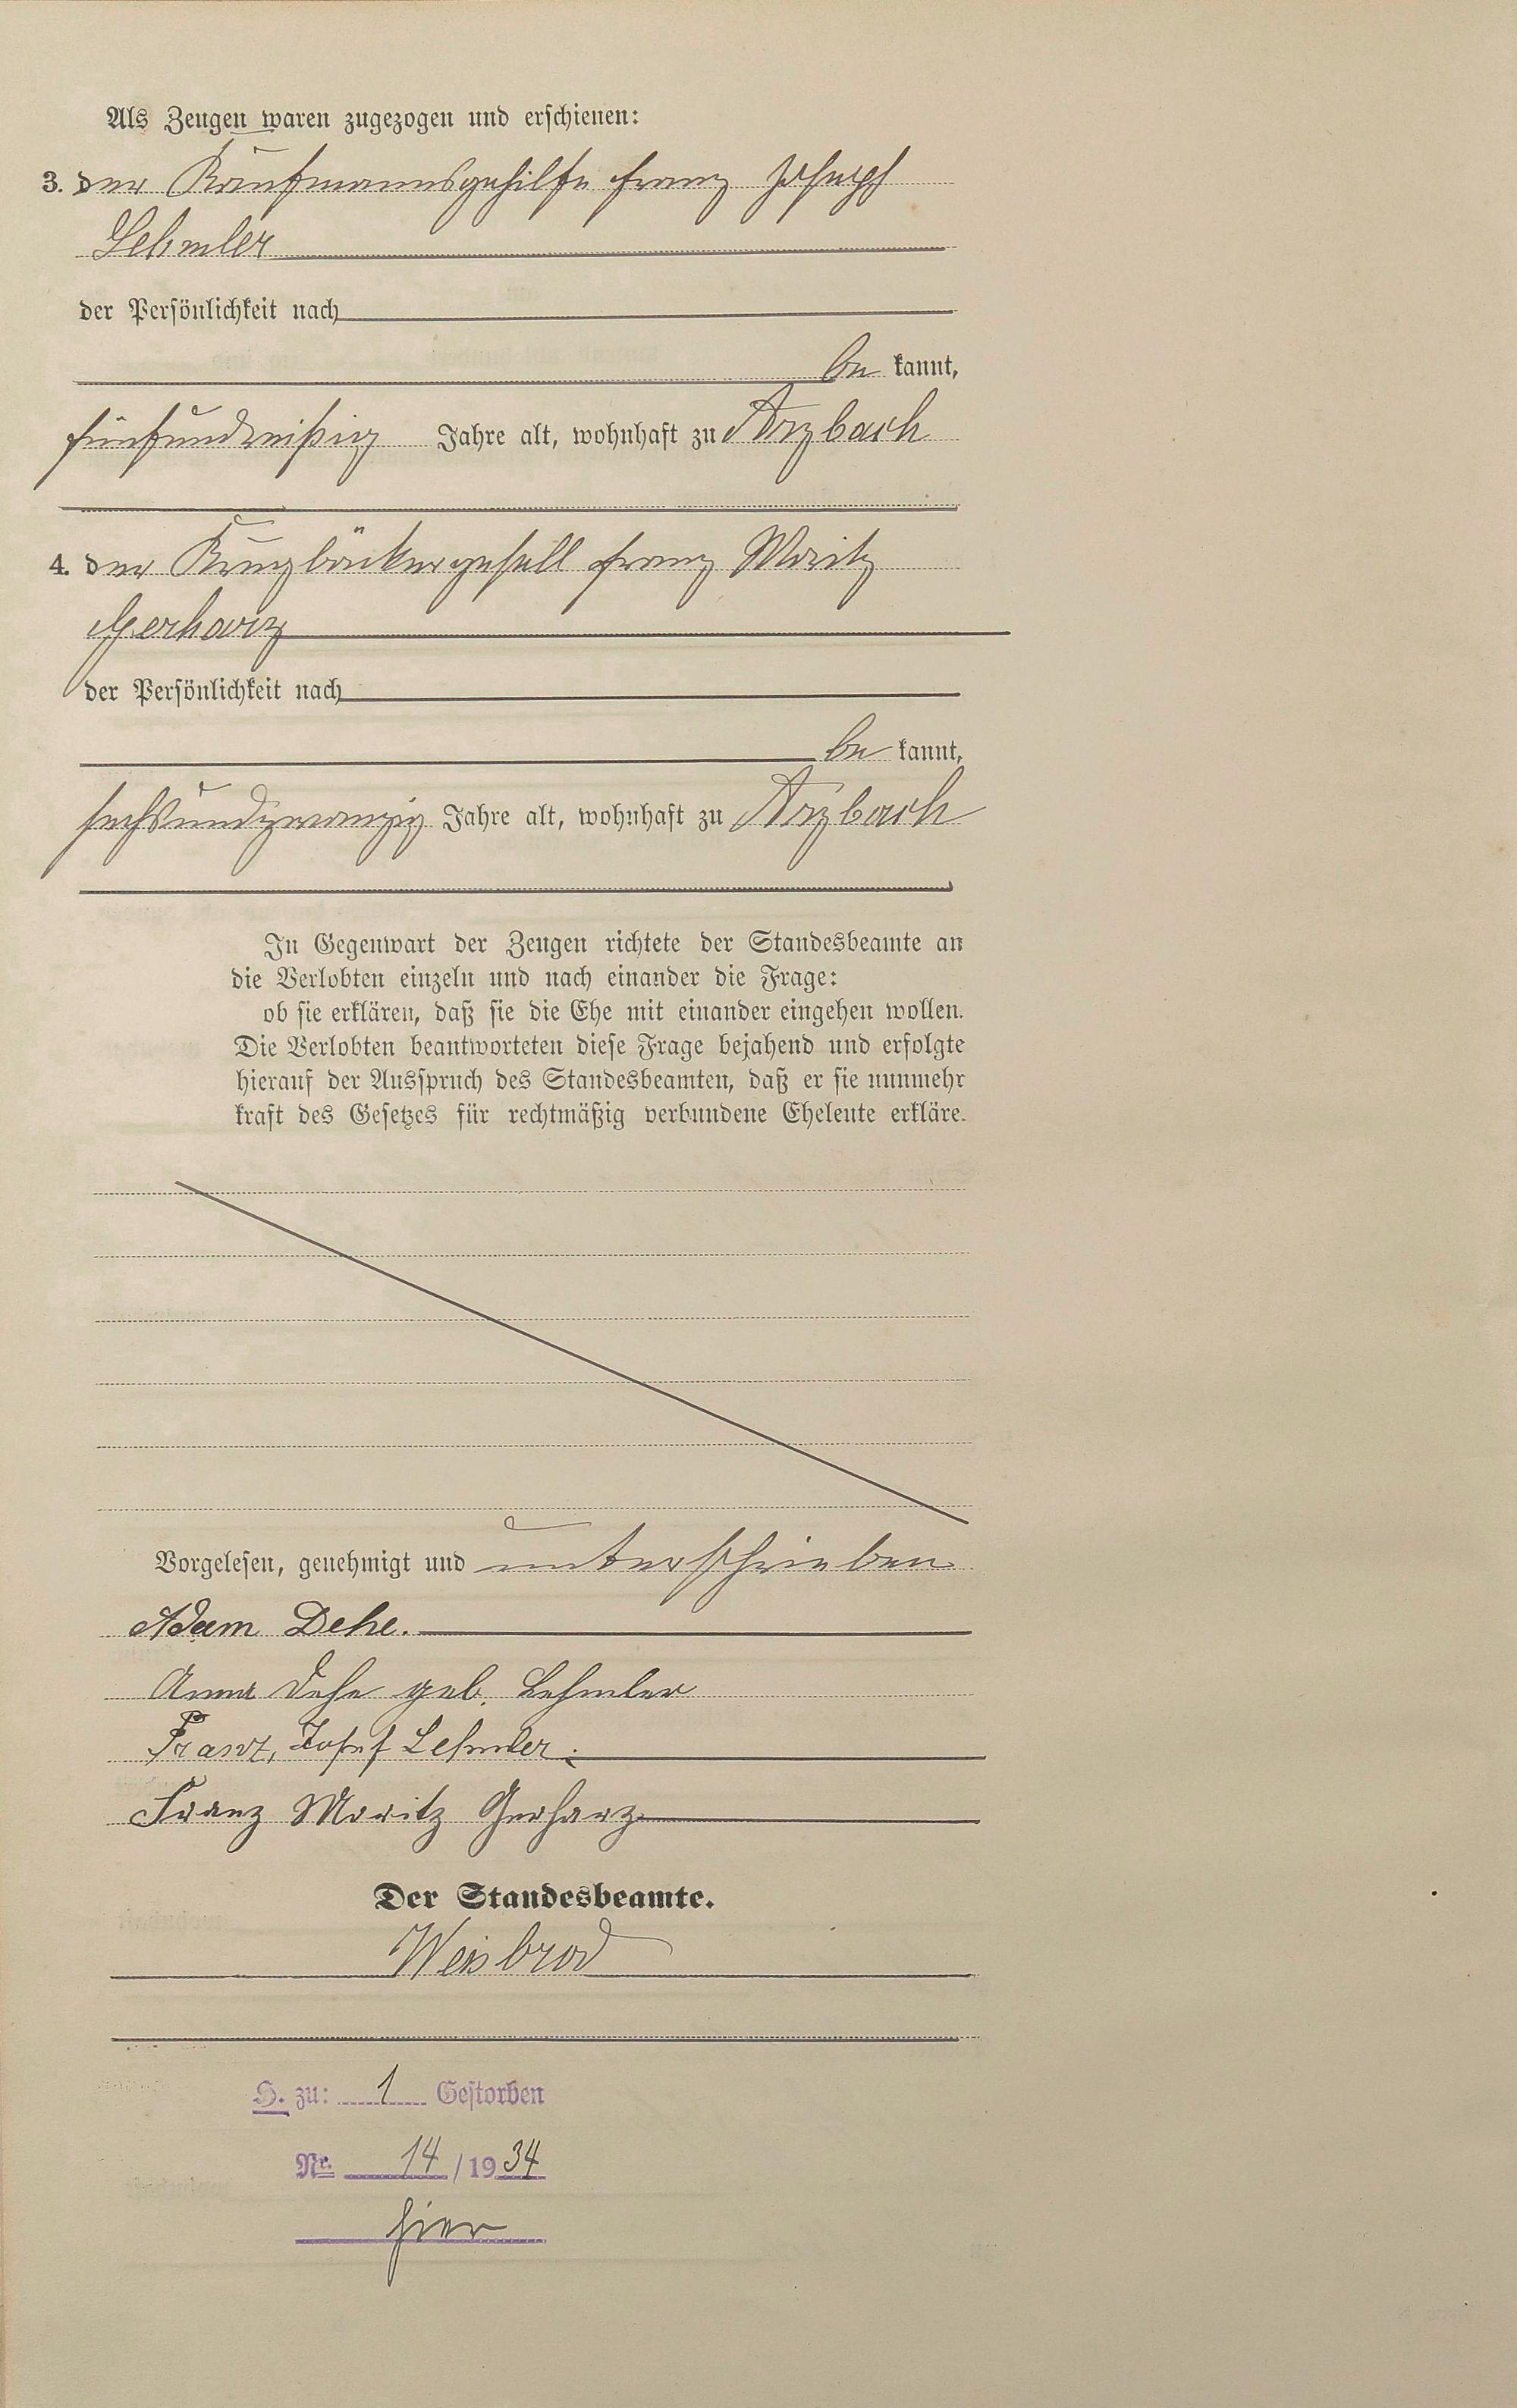 Als Zeugen waren zugezogen und erschienen:
3. der Kaufmannsgehilfe Franz Joseph
Lehmler
der Persönlichkeit nach
be kannt,
fünfunddreißig Jahre alt, wohnhaft zu Arzbach
4. der Krugbäckergesell Franz Moritz
Gerharz
der Persönlichkeit nach
be kannt,
sechsundzwanzig Jahre alt, wohnhaft zu Arzbach
In Gegenwart der Zeugen richtete der Standesbeamte an
die Verlobten einzeln und nach einander die Frage:
ob sie erklären, daß sie die Ehe mit einander eingehen wollen.
Die Verlobten beantworteten diese Frage bejahend und erfolgte
hierauf der Ausspruch des Standesbeamten, daß er sie nunmehr
kraft des Gesetzes für rechtmäßig verbundene Eheleute erkläre.
Vorgelesen, genehmigt und unterschrieben
Adam Dehe.
Anna Dehe geb. Lehmler
Franz, Josef Lehmler.
Franz Moritz Gerharz
Der Standesbeamte.
Weisbrod
H. zu: 1 Gestorben
Nr. 14/1934
hier